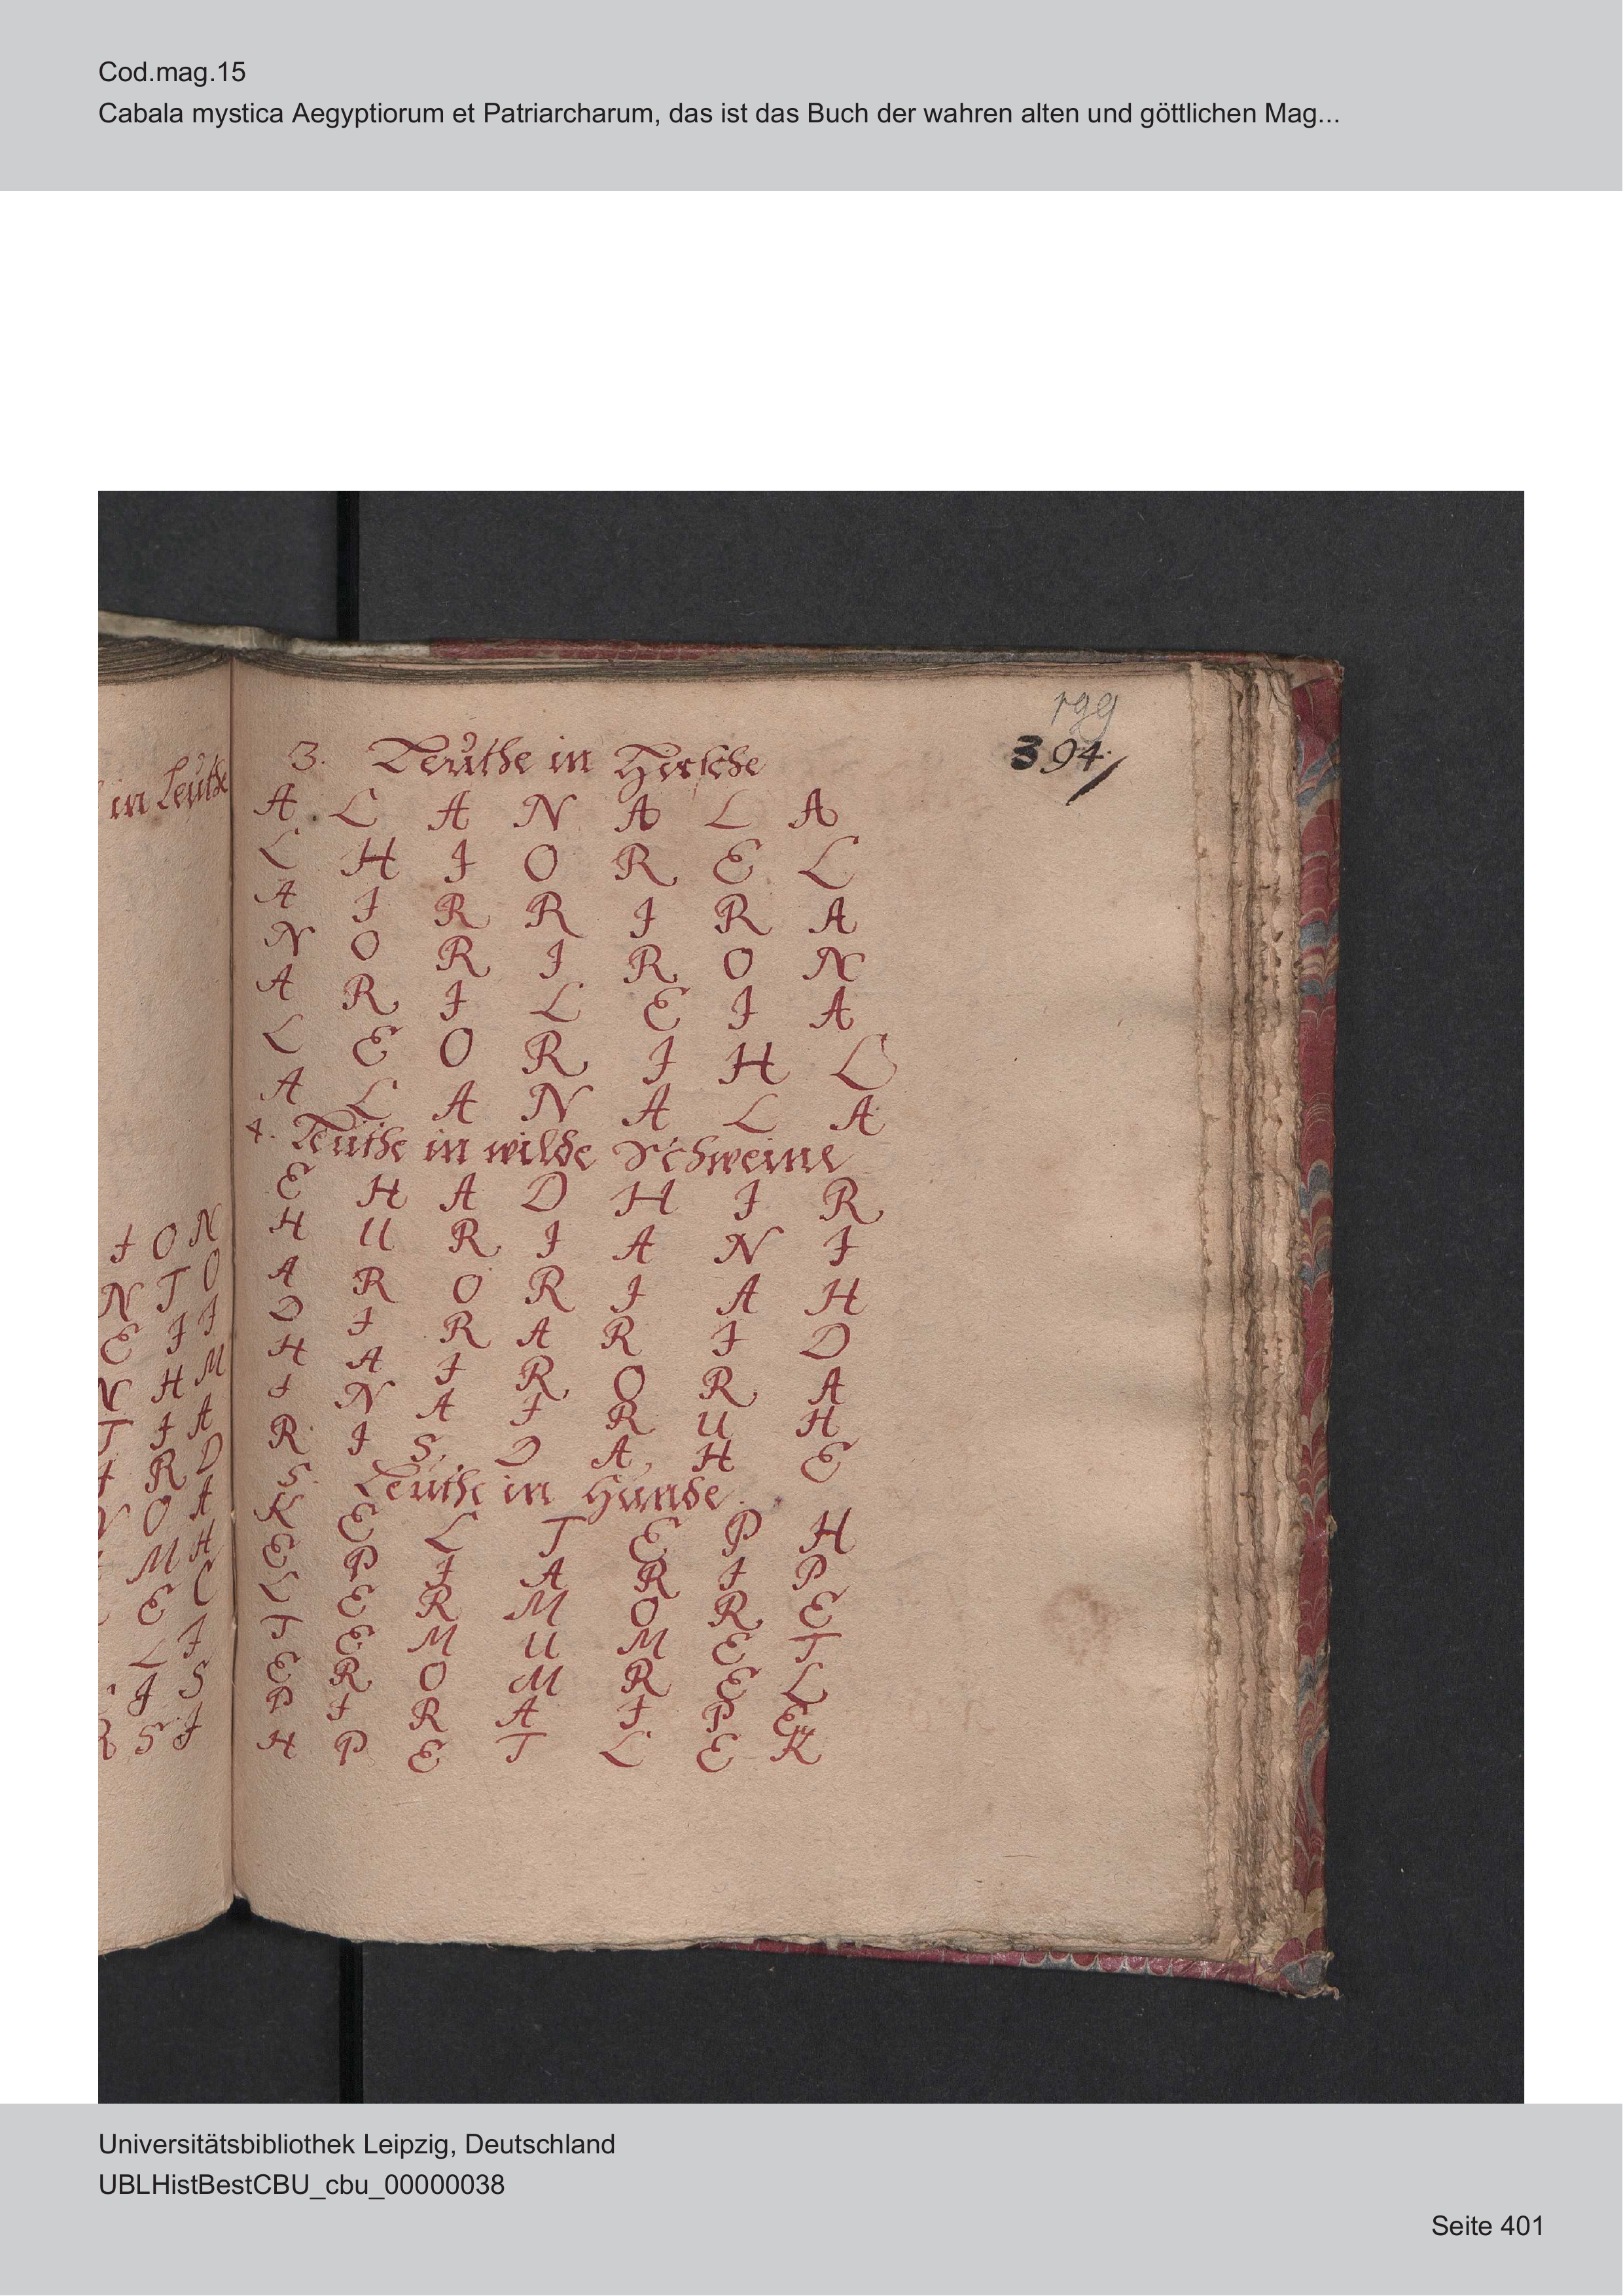 Cod.mag.15
Cabala mystica Aegyptiorum et Patriarcharum, das ist das Buch der wahren alten und göttlichen Mag...
199
394
in Leuthe
3. Leuthe in Hirsche
A L A N A L A
L H I O R E L
A I R R I R A
N O R I R O N
A R I L E I A
L E O R I H L
A L A N A L A
4. Leuthe in wilde Schweine
E H A D H I R
H U R I A N I
A R O R I A H
D I R A R I D
H A I R O R A
I N A I R U H
R I S. D A H E
5. Leuthe in Hunde.
K E L T E P H
E P I A R I P
L E R M O R E
T E M U M E T
E R O M R E L
P I R A I P E
H P E T L E K
I O N
N T O
E I I
N H M
T I A
I R D
O A
M H
E C
L I
I S
R S I
Universitätsbibliothek Leipzig, Deutschland
UBLHistBestCBU_cbu_00000038
Seite 401